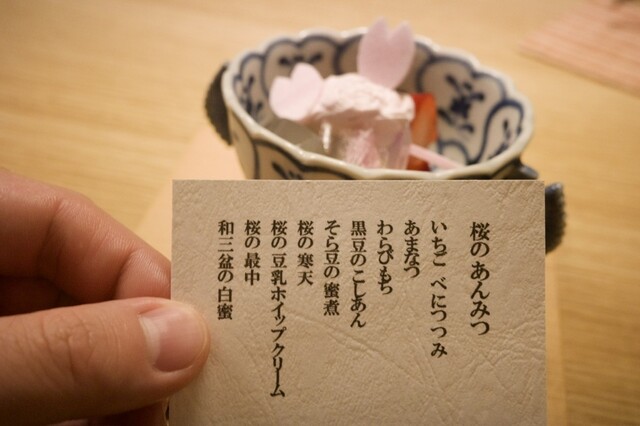 桜のあんみつ
いちご べにつつみ
あまなつ
わらびもち
黒豆のこしあん
そら豆の蜜煮
桜の寒天
桜の豆乳ホイップクリーム
桜の最中
和三盆の白蜜